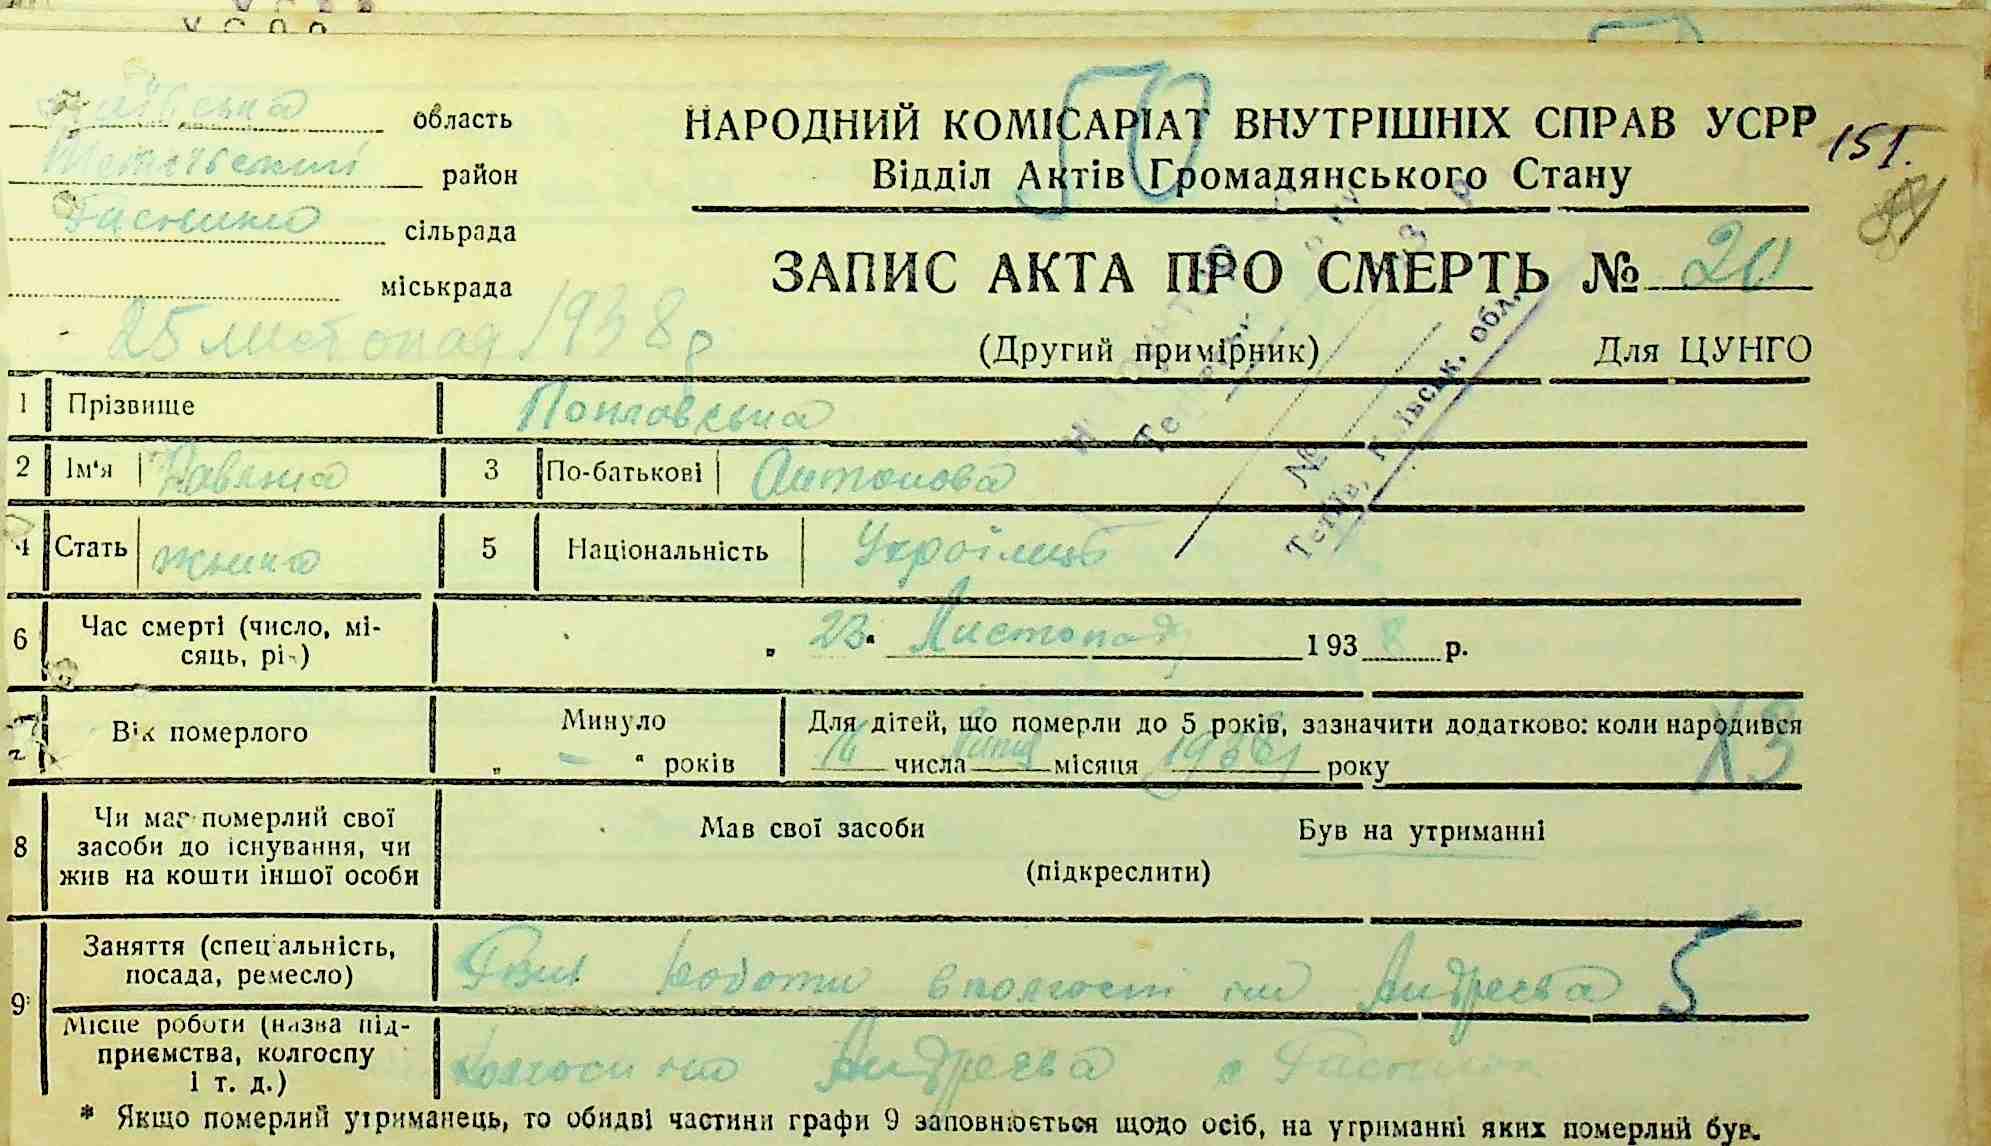 Київська область
Тетіївський район
сільрада
міськрада
НАРОДНИЙ КОМІСАРІАТ ВНУТРІШНІХ СПРАВ УСРР
Відділ Актів Громадянського Стану
50
151.
ЗАПИС АКТА ПРО СМЕРТЬ № 20
(Другий примірник) Для ЦУНГО
25 листопад 1938 р
1 Прізвище Поплавська
2 Ім'я 3 По-батькові Антонова
4 Стать 5 Національність
6 Час смерті (число, мі-
сяць, рік) „ 23 “ Листопад 1938 р.
7 Вік померлого Минуло Для дітей, що померли до 5 років, зазначити додатково: коли народився
„ – “ років 14 числа місяця 1938 року
8 Чи має померлий свої
засоби до існування, чи
жив на кошти іншої особи
Мав свої засоби Був на утриманні
(підкреслити)
9* Заняття (спеціальність,
посада, ремесло) роботи в колгоспі Андреєва 5
Місце роботи (назва під-
приємства, колгоспу
і т. д.) Колгосп Андреєва с
* Якщо померлий утриманець, то обидві частини графи 9 заповнюється щодо осіб, на утриманні яких померлий був.